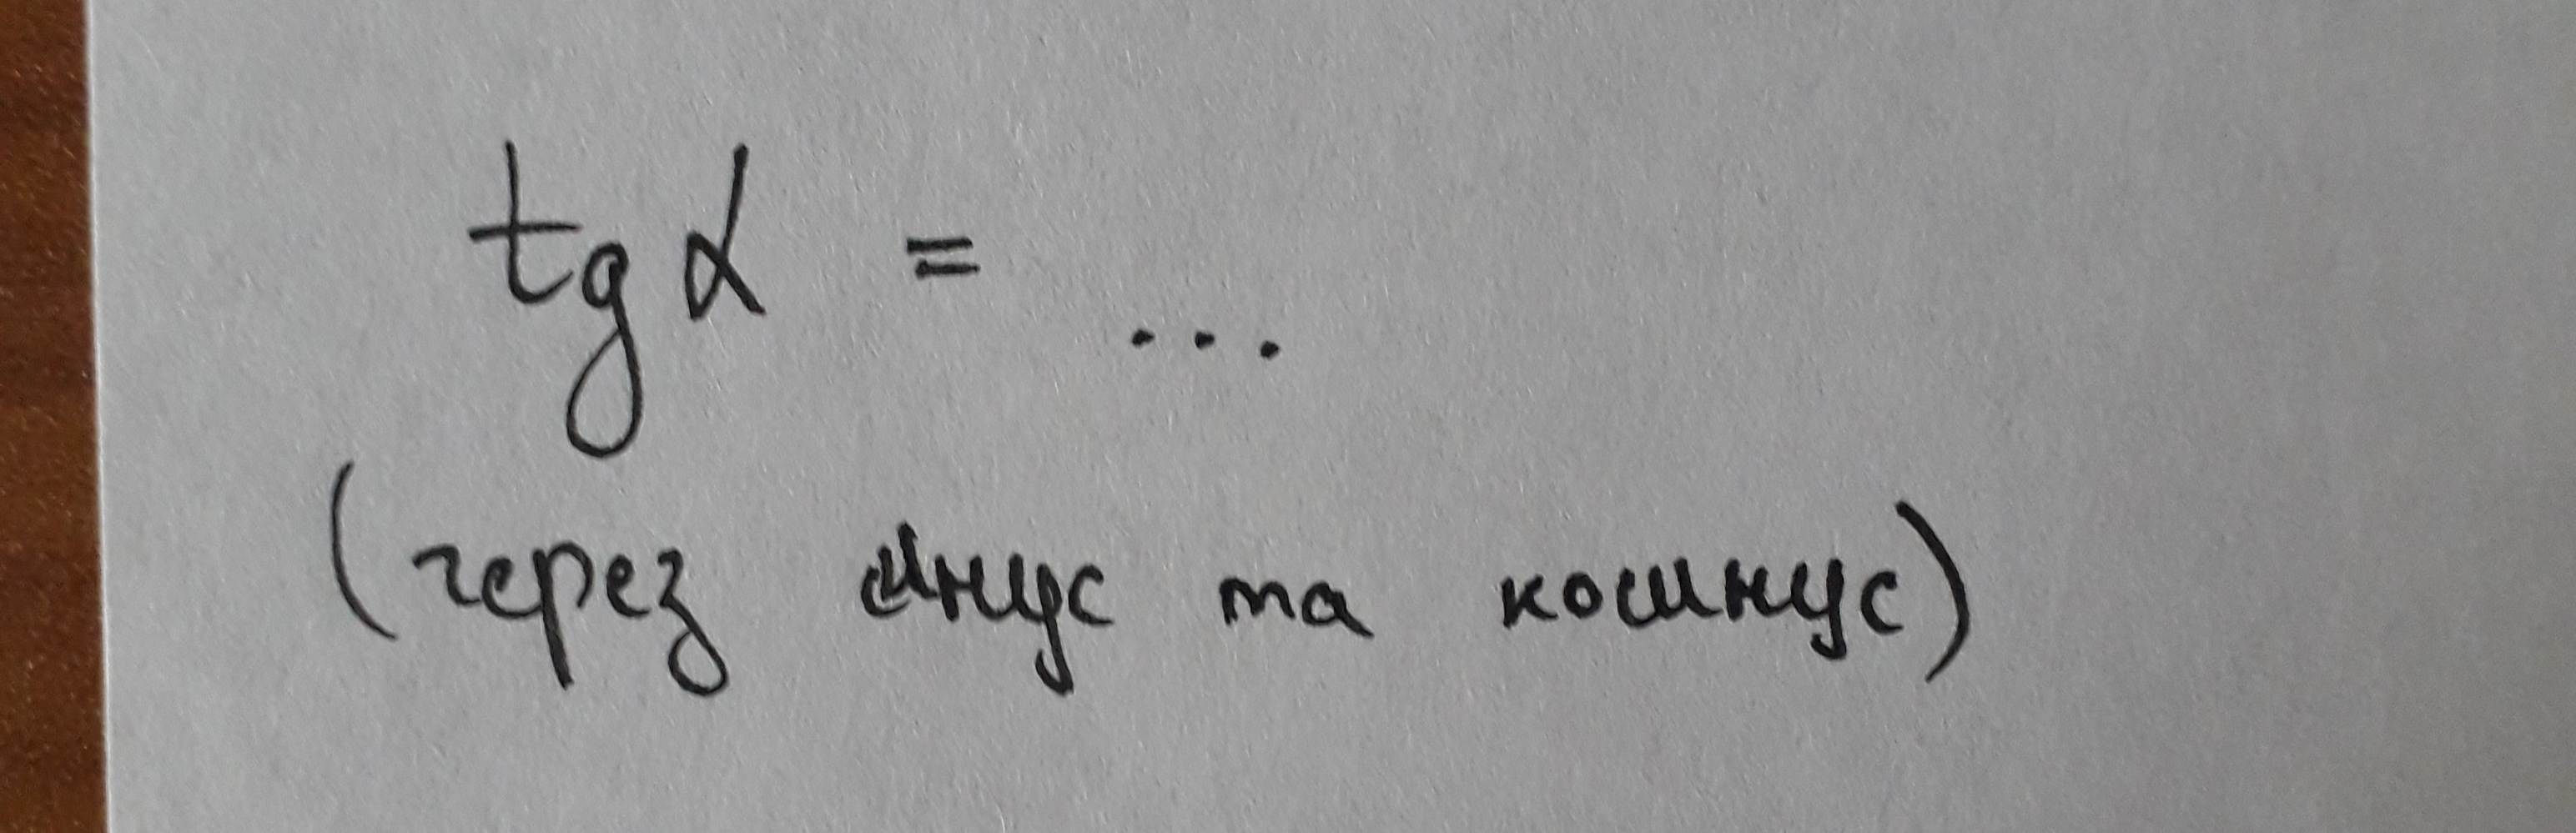 tg α = ...
(через синус та косинус)